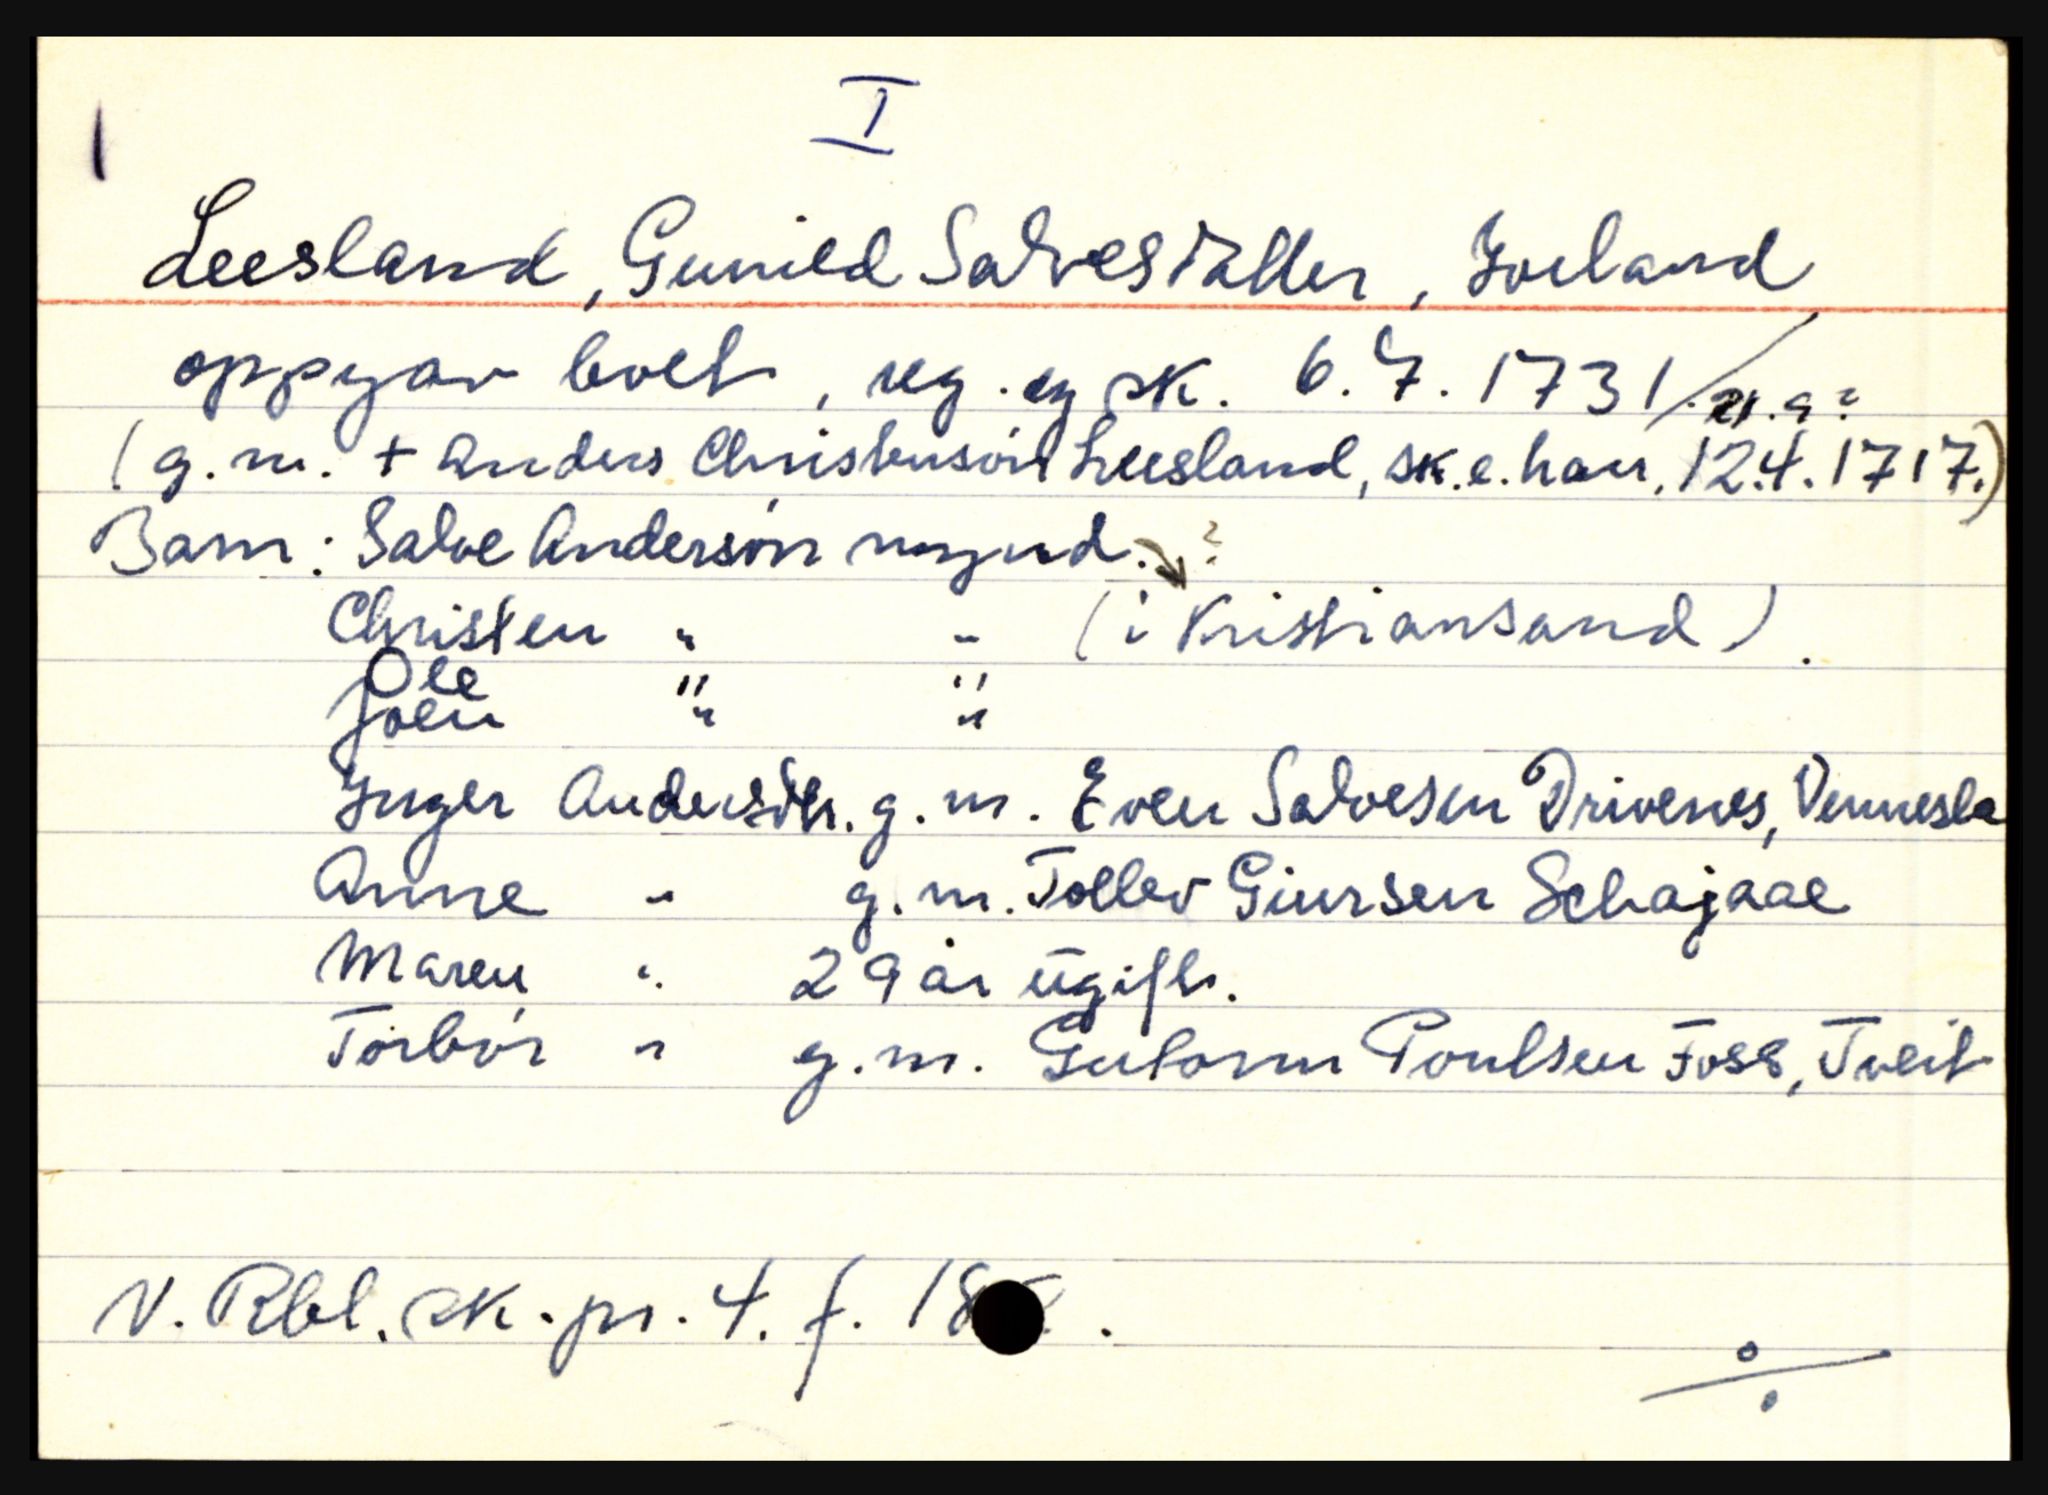 I
Leesland, Gunild Salvesdatter, Iveland
oppgav boet, reg. og sk. 6.7.1731/21.9?
(g.m. + Anders Christensøn Leesland, sk.e. han, 12.4.1717.)
Barn: Salve Andersøn mynd. ?
Christen " - (i Kristiansand).
Ole " "
Joen " "
Inger Andersdtr. g.m. Even Salvesen Drivenes, Vennesla
Anne " g.m. Tollev Giursen Schajaae
Maren " 29 år ugift.
Torbør " g.m. Gutorm Poulsen Foss, Tveit
N. Rbl. sk. pr. 4. f. 18